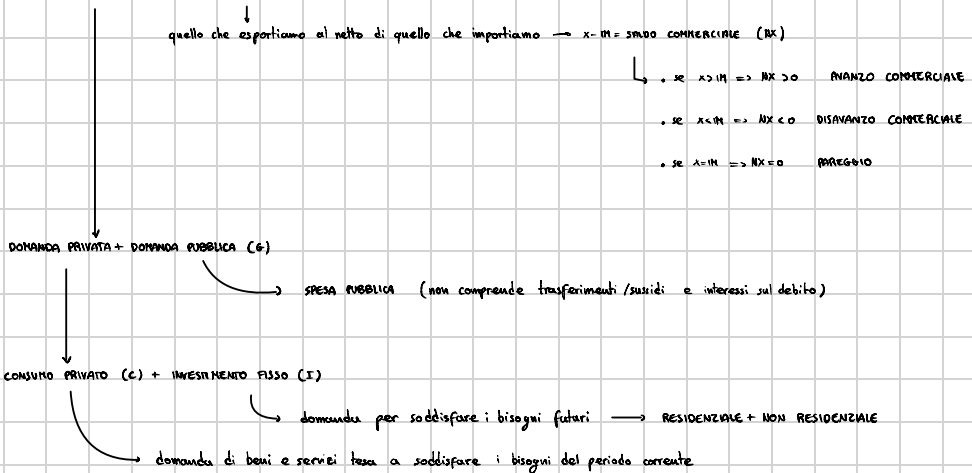 quello che esportiamo al netto di quello che importiamo → X-IM = SALDO COMMERCIALE (NX)
• se X>IM => NX>0 AVANZO COMMERCIALE
• se X<IM => NX<0 DISAVANZO COMMERCIALE
• se X=IM => NX=0 PAREGGIO
DOMANDA PRIVATA + DOMANDA PUBBLICA (G)
SPESA PUBBLICA (non comprende trasferimenti/sussidi e interessi sul debito)
CONSUMO PRIVATO (C) + INVESTIMENTO FISSO (I)
domanda per soddisfare i bisogni futuri → RESIDENZIALE + NON RESIDENZIALE
domanda di beni e servizi tesa a soddisfare i bisogni del periodo corrente